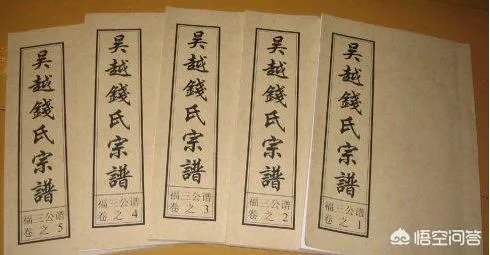 吴越錢氏宗譜
福三公谱
卷之5
吴越錢氏宗譜
福三公谱
卷之4
吴越錢氏宗譜
福三公谱
卷之3
吴越錢氏宗譜
福三公谱
卷之2
吴越錢氏宗譜
福三公谱
卷之1
悟空问答